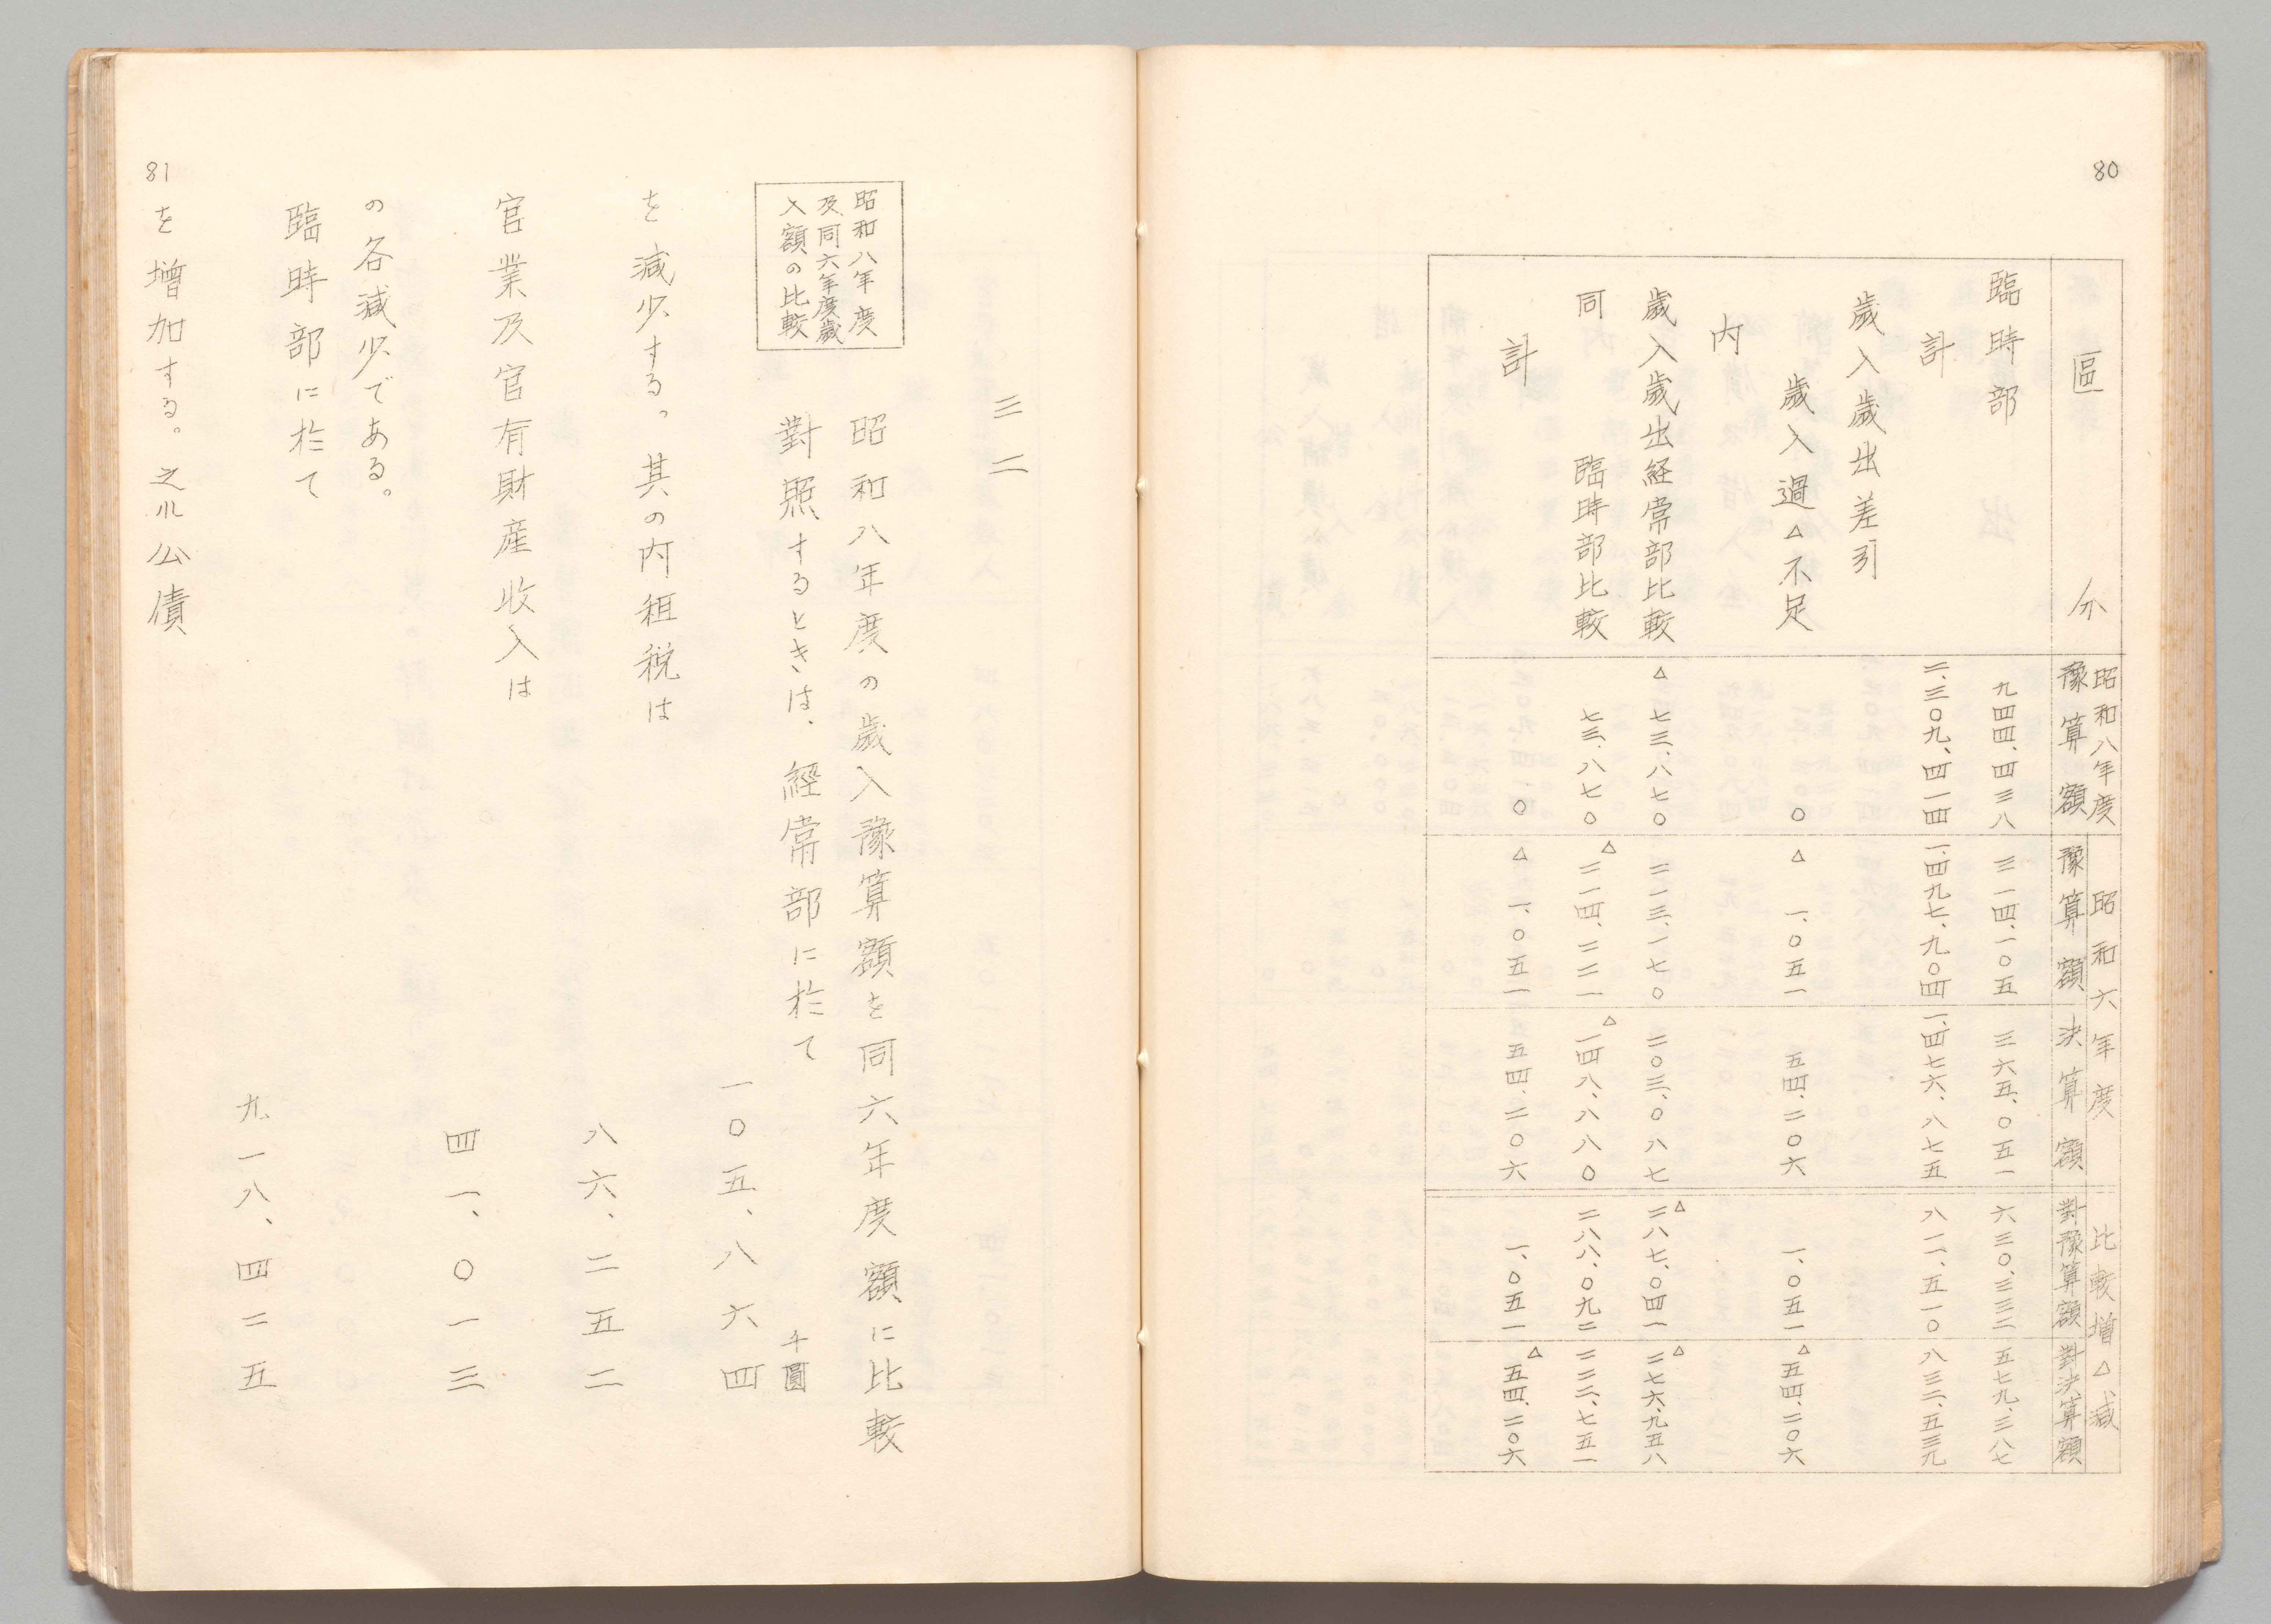 80
區分
昭和八年度
豫算額
昭和六年度
豫算額
決算額
比較增△減
對豫算額
對決算額
臨時部 九四四、四三八 三一四、一〇五 三六五、〇五一 六三〇、三三三 五七九、三八七
計 二、三〇九、四一四 一、四九七、九〇四 一、四七六、八七五 八一一、五一〇 八三二、五三九
歲入歲出差引
內
歲入過△不足 〇 △一、〇五一 五四、二〇六 一、〇五一 △五四、二〇六
歲入歲出経常部比較 △七三、八七〇 二一三、一七〇 二〇三、〇八七 △二八七、〇四一 △二七六、九五八
同臨時部比較 七三、八七〇 △二一四、二二一 △一四八、八八〇 二八八、〇九二 二二二、七五一
計 〇 △一、〇五一 五四、二〇六 一、〇五一 △五四、二〇六
三二
昭和八年度
及同六年度歲
入額の比較
昭和八年度の歲入豫算額を同六年度額に比較
對照するときは、經常部に於て
千圓
一〇五、八六四
を減少する。其の內租税は
八六、二五二
官業及官有財産收入は
四一、〇一三
の各減少である。
臨時部に於て
九一八、四二五
を增加する。之れ公債
81